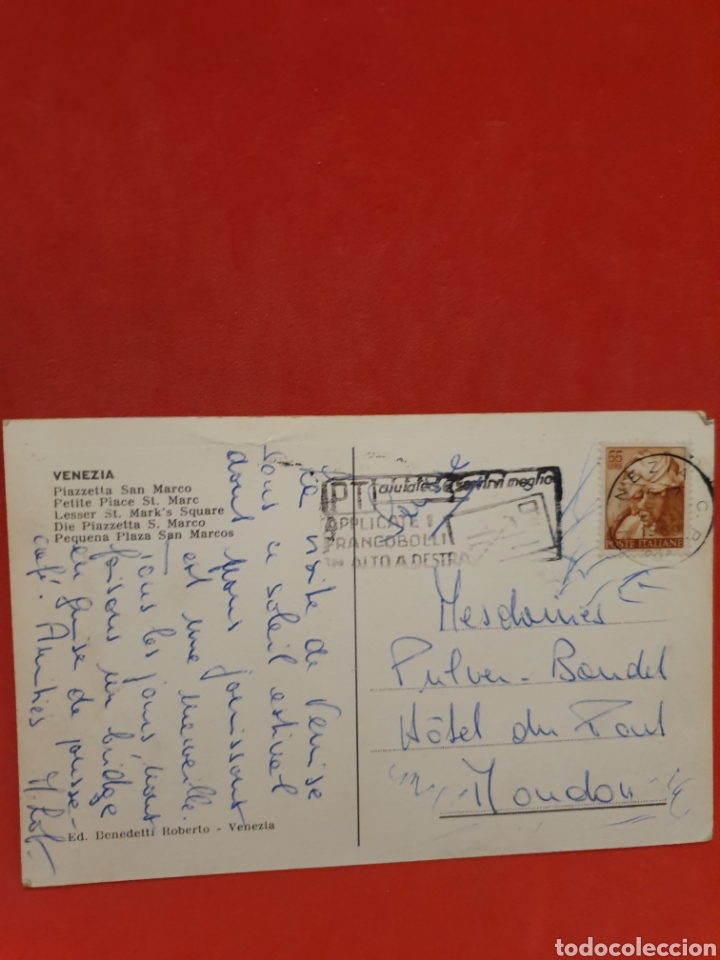 VENEZIA
Piazzetta San Marco
Petite Piace St. Marc
Lesser St. Mark's Square
Die Piazzetta S. Marco
Pequena Plaza San Marcos
La visite de Venise
sous ce soleil estival
dont nous jouissons
est une merveille.
Tous les jours nous
faisons un bridge
en guise de pousse-
café. Amitiés
Ed. Benedetti Roberto - Venezia
PT aiutateci a servirvi meglio
APPLICATE I
FRANCOBOLLI
IN ALTO A DESTRA
55
LIRE
POSTE ITALIANE
VENEZIA
Mesdames
Pulver-Bandel
Hôtel du Pont
Moudon
todocoleccion